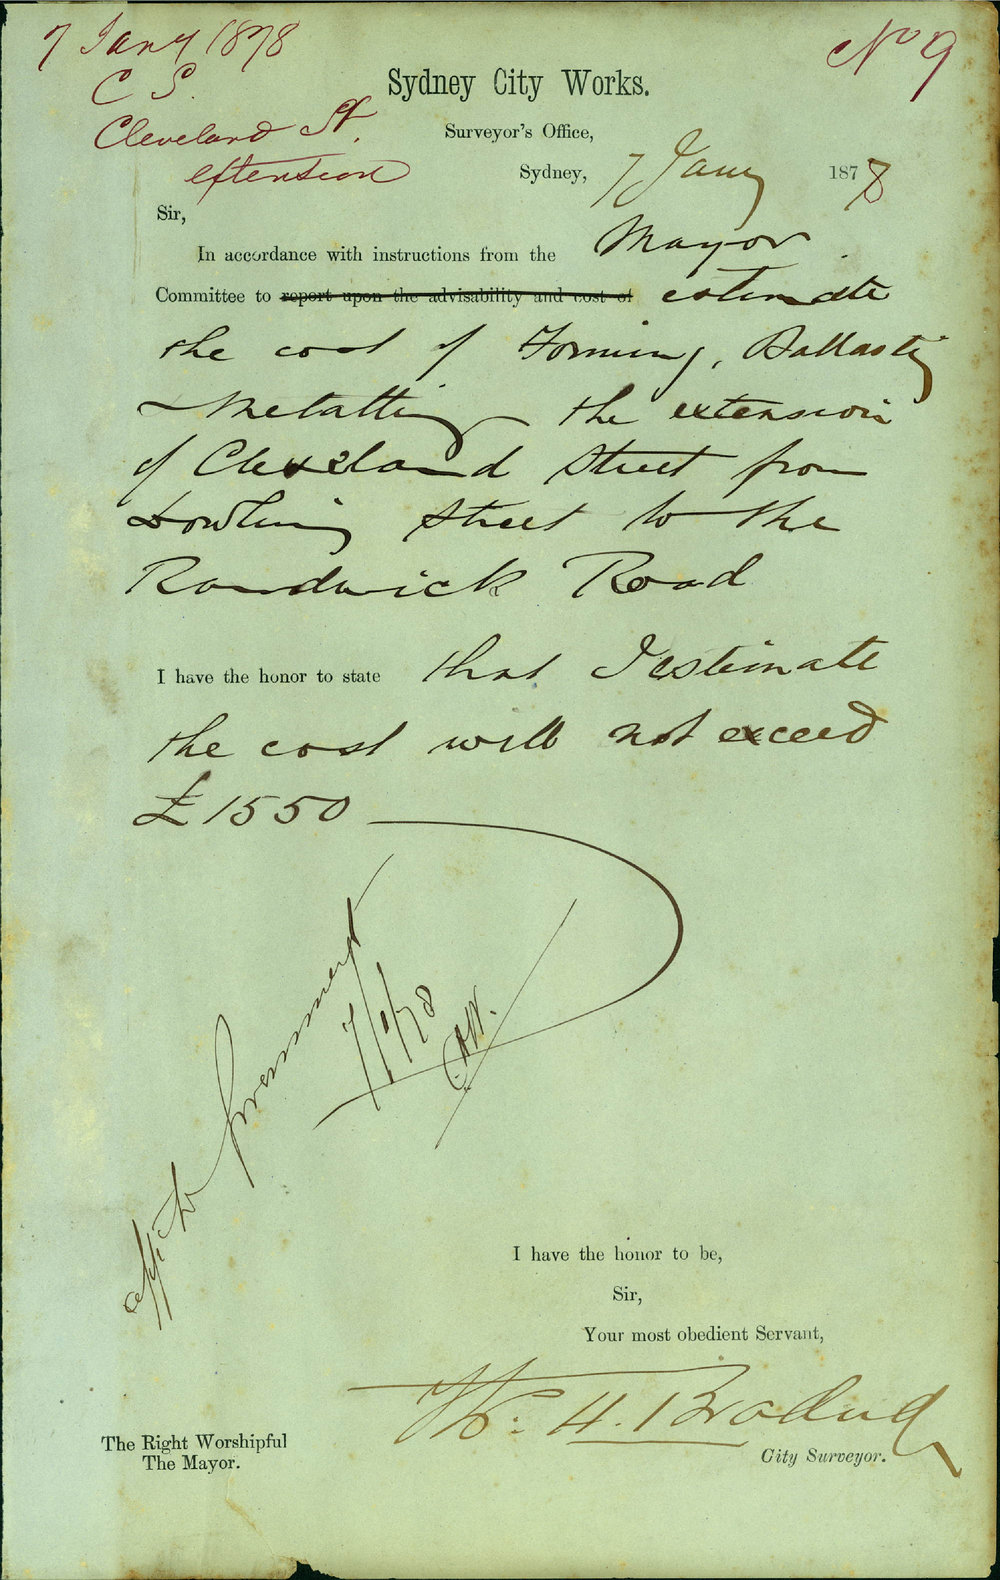 7 Jany 1878
No 9
C S.
Cleveland St.
extension
Sydney City Works.
Surveyor's Office,
Sydney, 7 Jany 1878
Sir,
In accordance with instructions from the Mayor
Committee to report upon the advisability and cost of estimate
the cost of Forming, Ballasting
Metalling the extension
of Cleveland Street from
Dowling Street to the
Randwick Road
I have the honor to state that I estimate
the cost will not exceed
£1550
appn to Government
7/1/78
I have the honor to be,
Sir,
Your most obedient Servant,
H. Bradud
City Surveyor.
The Right Worshipful
The Mayor.